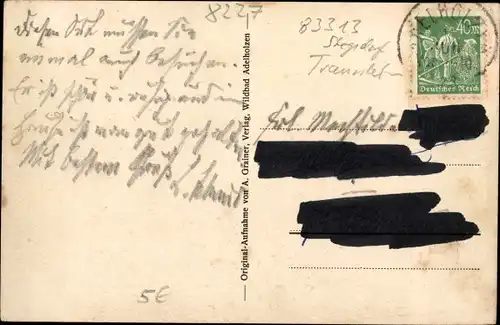 8227
Diesen Ort müssen Sie
einmal auch besuchen.
Er ist schön u. ruhig und im
Hause ist man gut
Mit bestem Gruß
83313
Siegsdorf
Traunstein
40 M
Deutsches Reich
Frl. Mathilde
Original-Aufnahme von A. Grainer, Verlag, Wildbad Adelholzen
5€